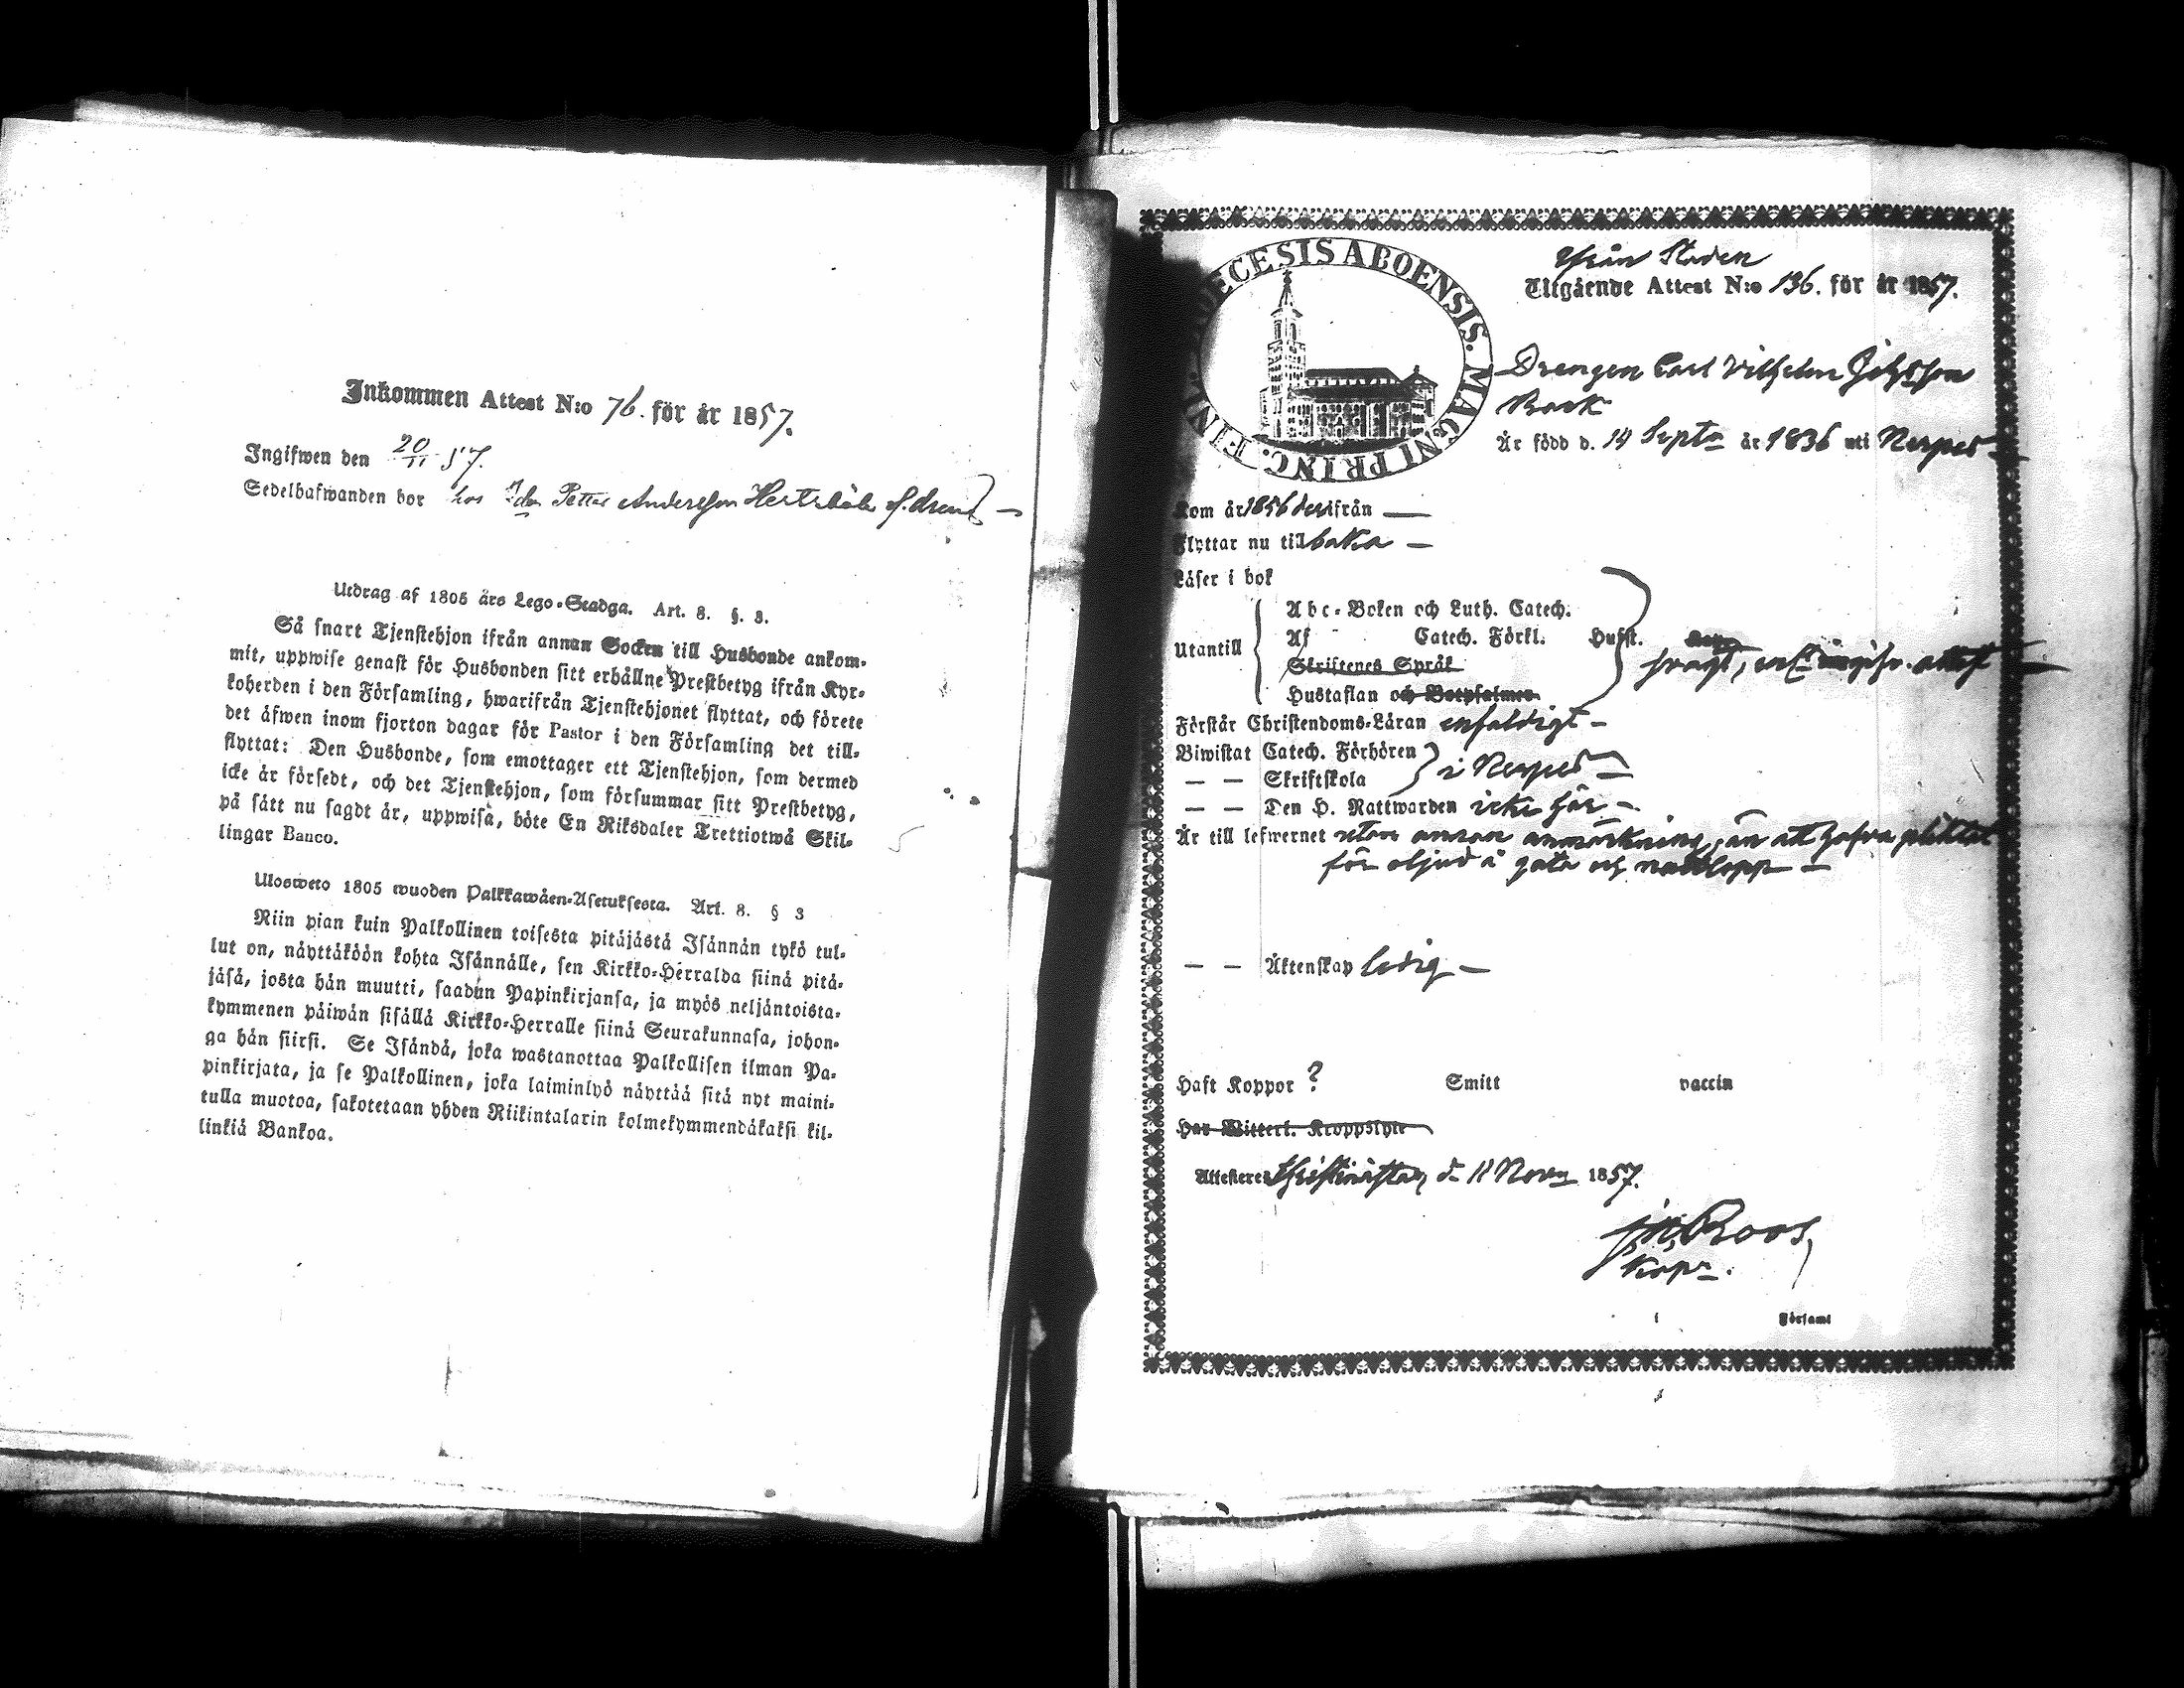 Inkommen Attest N:o 76. för år 1857.
Ingifwen den 20/11 57.
Sedelhafwanden bor hos Petter Andersson
Utdrag af 1805 års Lego-Stadga. Art. 8. §. 3.
Så snart Tjenstehjon ifrån annan Socken till Husbonde ankom-
mit, uppwise genast för Husbonden sitt erhållne Prestbetyg ifrån Kyr-
koherden i den Församling, hwarifrån Tjenstehjonet flyttat, och förete
det äfwen inom fjorton dagar för Pastor i den Församling det till-
flyttat: Den Husbonde, som emottager ett Tjenstehjon, som dermed
icke är försedt, och det Tjenstehjon, som försummar sitt Prestbetyg,
på sätt nu sagdt är, uppwisa, böte En Riksdaler Trettiotwå Skil-
lingar Banco.
Ulosweto 1805 wuoden Palkkawäen-Asetuksesta. Art. 8. § 3
Niin pian kuin Palkollinen toisesta pitäjästä Isännän tykö tul-
lut on, näyttäköön kohta Isännälle, sen Kirkko-Herralda siinä pitä-
jäsä, josta hän muutti, saadun Papinkirjansa, ja myös neljäntoista-
kymmenen päiwän sisällä Kirkko-Herralle siinä Seurakunnasa, johon-
ga hän siirsi. Se Isändä, joka wastanottaa Palkollisen ilman Pa-
pinkirjata, ja se Palkollinen, joka laiminlyö näyttää sitä nyt maini-
tulla muotoa, sakotetaan yhden Riikintalarin kolmekymmendäkaksi kil-
linkiä Bankoa.
DIOECESIS ABOENSIS. MAGNI PRINC. FINL.
Från Staden
Utgående Attest N:o 136. för år 1857.
Drengen Carl Vilhelm Johsson
Är född d. 14 Septr år 1836 uti Nerpes
Kom år 1856 derifrån —
Flyttar nu tillbaka —
Läser i bok
Utantill
Abc-Boken och Luth. Catech.
Af Catech. Förkl. Husst.
Skriftenes Språk
Hustaflan och Botpsalmer
svagt, enl. ingifv. attest
Förstår Christendoms-Läran enfaldigt —
Biwistat Catech. Förhören
— — Skriftskola
i Nerpes —
— — Den H. Nattwarden icke här —
Är till lefwernet utan annan anmärkning, än att hafva pliktat
för oljud å gata och nattlopp —
— — Äktenskap ledig —
Haft Koppor ? Smitt vaccin
Har Witterl. Kroppslyte
Attesteres Christinestad, d. 11 Novem 1857.
Roos,
Kapn.
i Församl